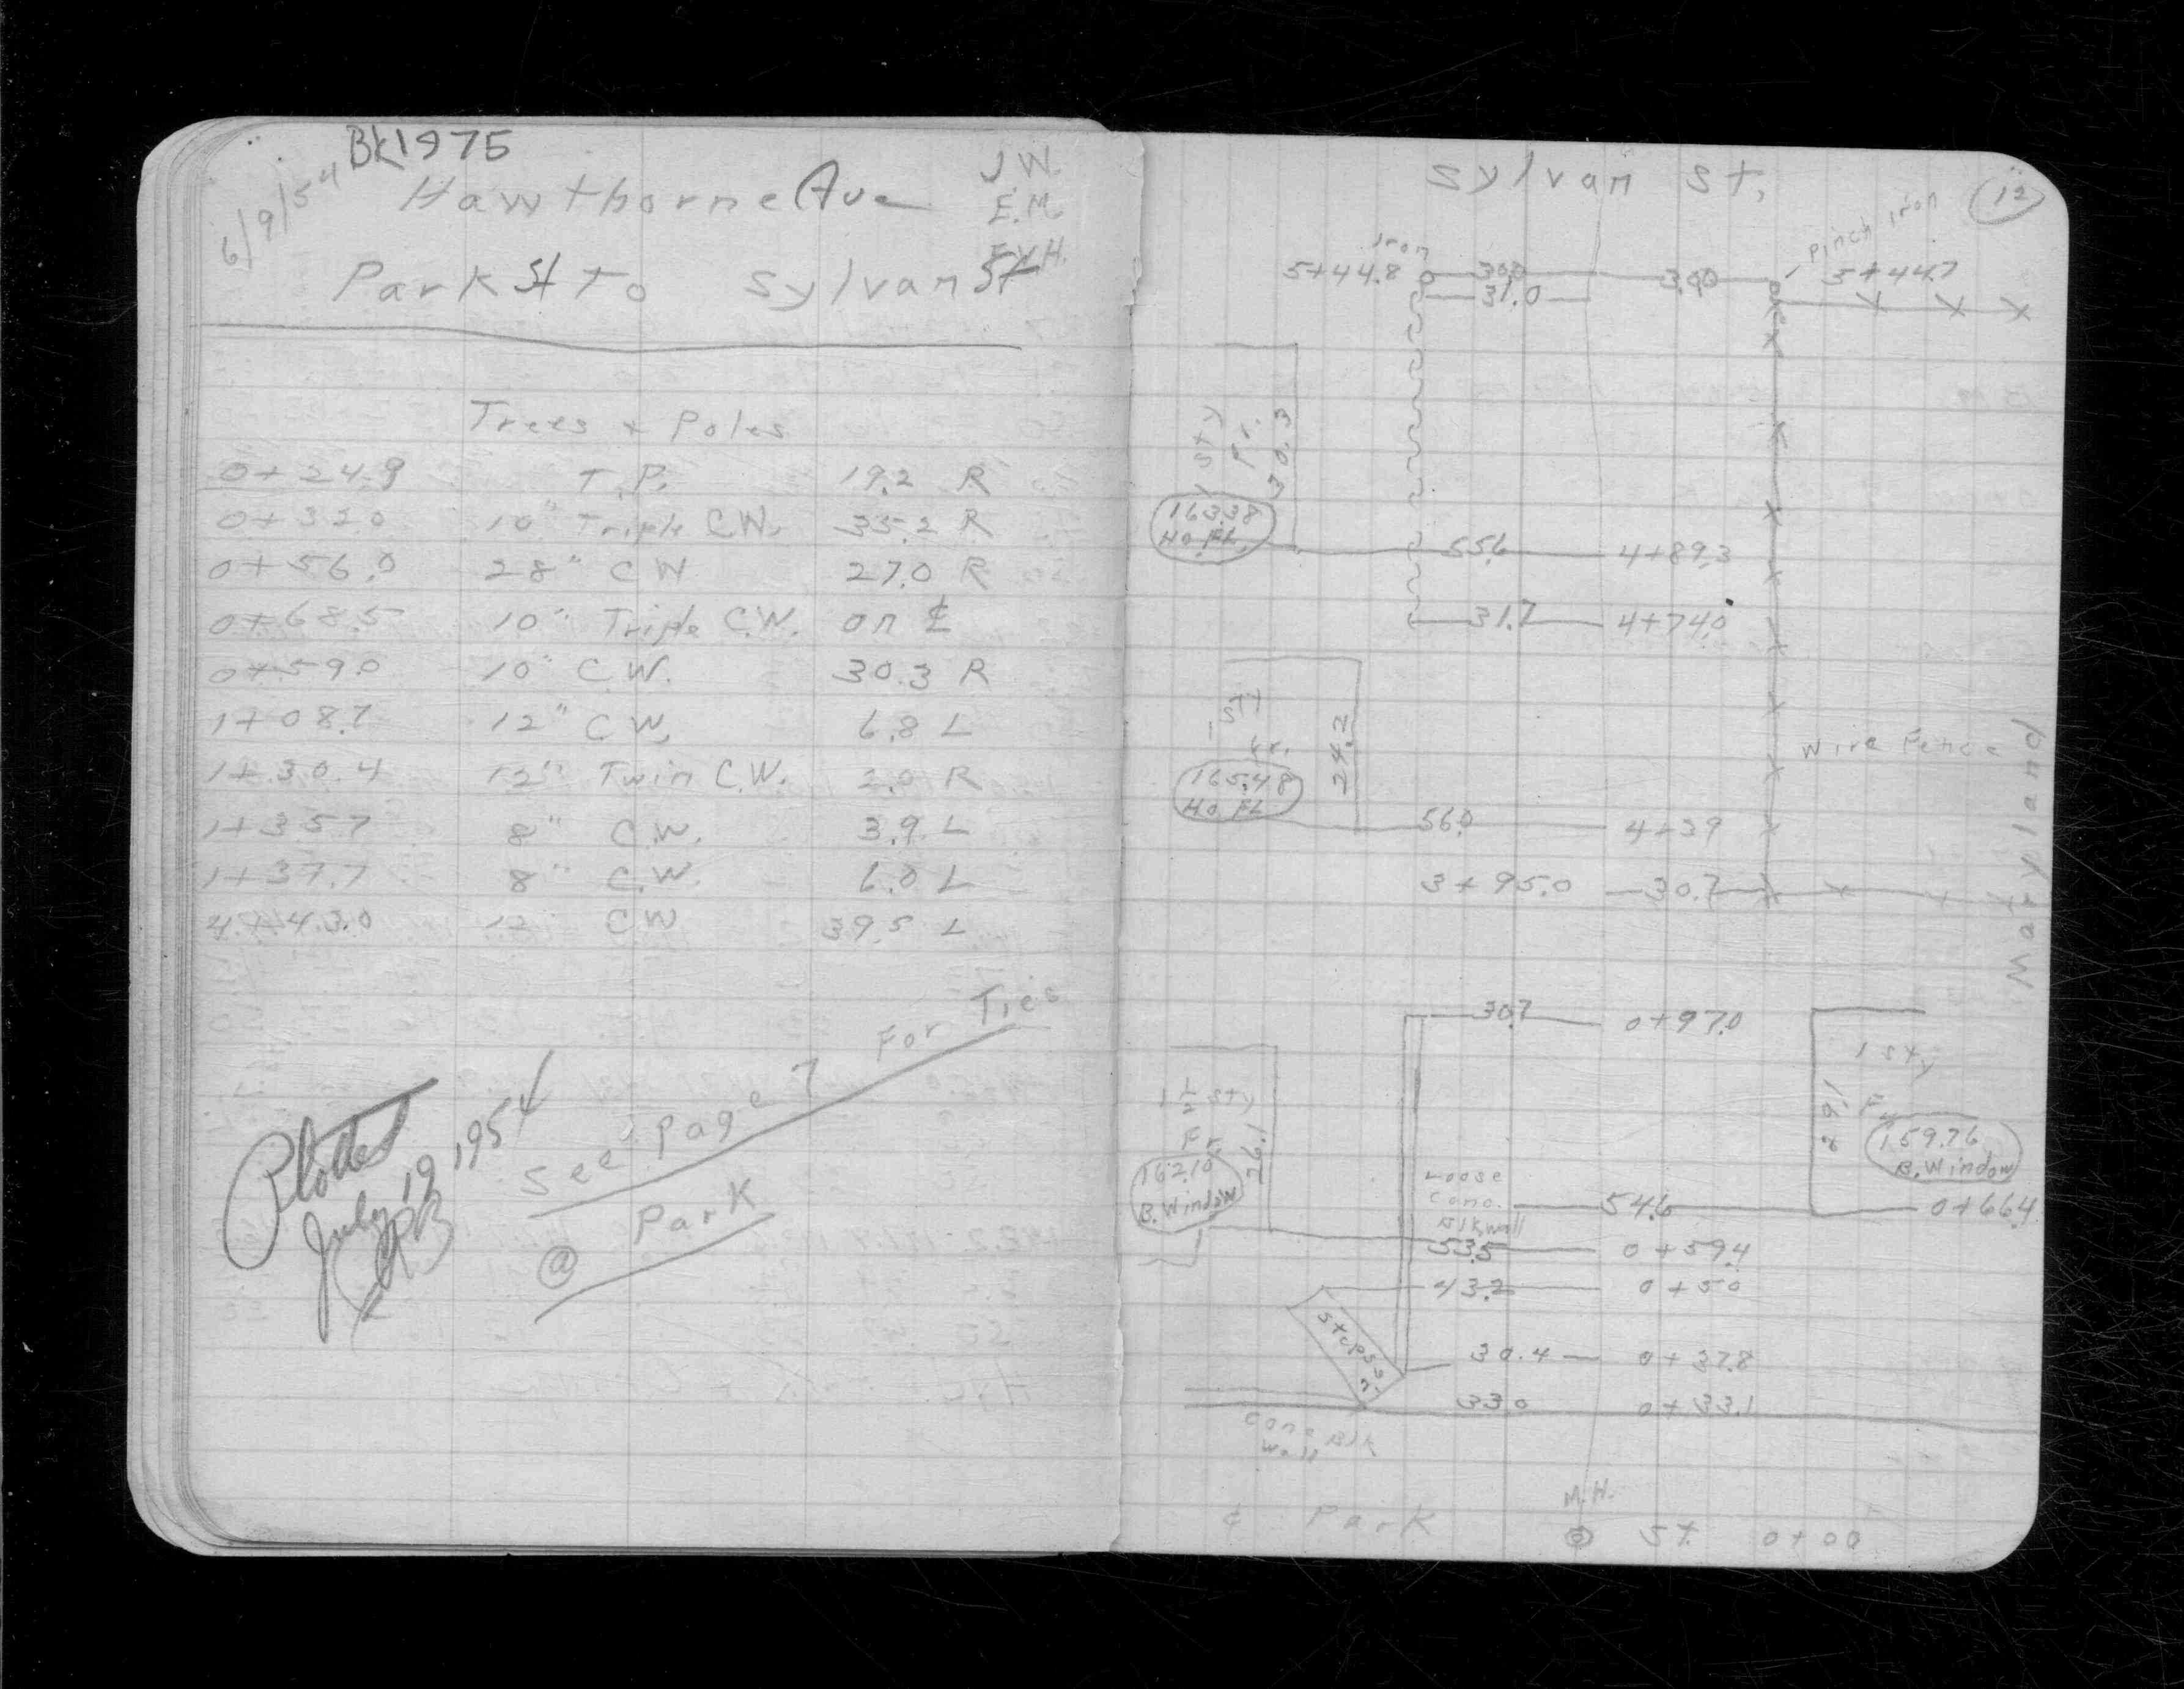 Bk 1975
6/9/54
Hawthorne Ave
J.W.
E.M.
F.V.H.
Park St to Sylvan St
Trees + Poles
0+24.9 T.P. 19.2 R
0+32.0 10" Triple C.W. 35.2 R
0+56.0 28" CW 27.0 R
0+68.5 10" Triple C.W. on ℄
0+59.0 10" C.W. 30.3 R
1+08.7 12" C.W. 6.8 L
1+30.4 12" Twin C.W. 2.0 R
1+35.7 8" C.W. 3.9 L
1+37.7 8" C.W. 6.0 L
4+43.0 12 CW 39.5 L
See Page 7 For Ties
@ Park
Plotted
July 19, 1954
Sylvan St.
12
Iron
Pinch Iron
5+44.8 30.0 30.0 5+44.7
31.0
1 Sty
Fr.
30.3
163.38
Ho. FL.
55.6 4+89.3
31.7 4+74.0
1 Sty
Fr.
24.2
165.48
Ho. FL
Wire Fence
56.0 4+39
3+95.0 30.7
Maryland
30.7 0+97.0
1 Sty
Fr.
29.1
159.76
B. Window
1 1/2 Sty
Fr.
26.1
162.10
B. Window
Loose
Conc.
Blk wall
54.6 0+66.4
53.5 0+59.4
43.2 0+50
Steps
30.4 0+37.8
33.0 0+33.1
Conc Blk
Wall
M.H.
℄ Park St 0+00